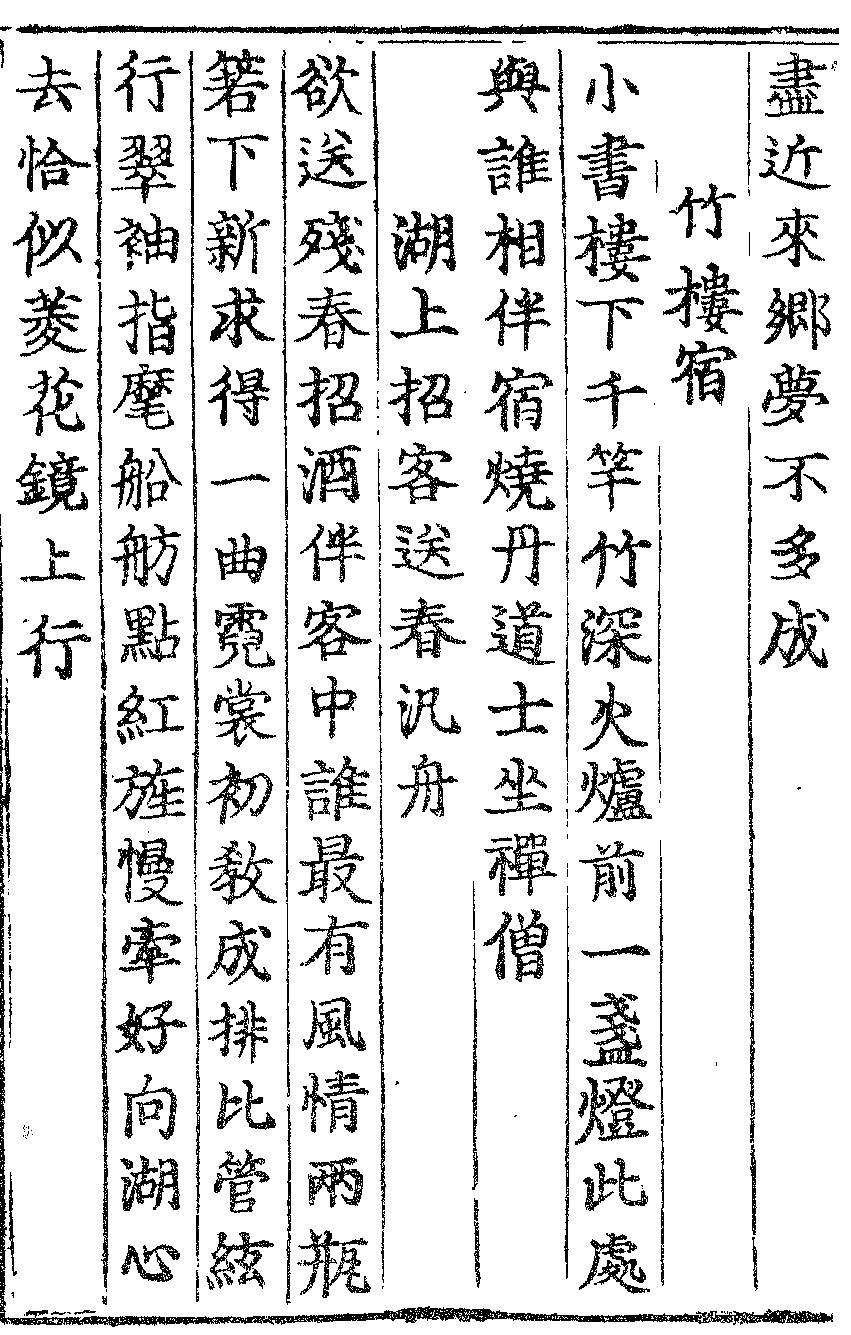 盡近來鄉夢不多成
竹樓宿
小書樓下千竿竹深火爐前一盞燈此處
與誰相伴宿燒丹道士坐禪僧
湖上招客送春汎舟
欲送殘春招酒伴客中誰最有風情兩瓶
箬下新求得一曲霓裳初教成排比管絃
行翠袖指麾船舫點紅旌慢牽好向湖心
去恰似菱花鏡上行